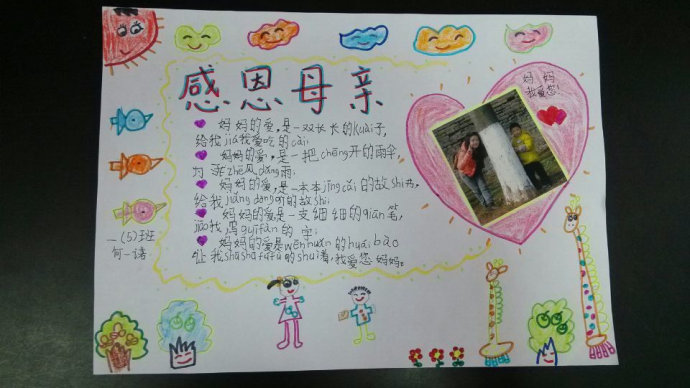 感恩母亲
妈妈
我爱您!
妈妈的爱,是一双长长的kuài子,
给我jiā我爱吃的cài.
妈妈的爱,是一把chēng开的雨伞,
为我zhē风dǎng雨.
妈妈的爱,是一本本jīng cǎi的故shi书,
给我jiǎng dòng tīng的故shi.
妈妈的爱是一支细细的qiān笔,
jiāo我,写guī fàn的字;
妈妈的爱是wēn nuǎn的huái bào
让我shū shū fú fú的shuì着,我爱您妈妈。
一(5)班
何一诺